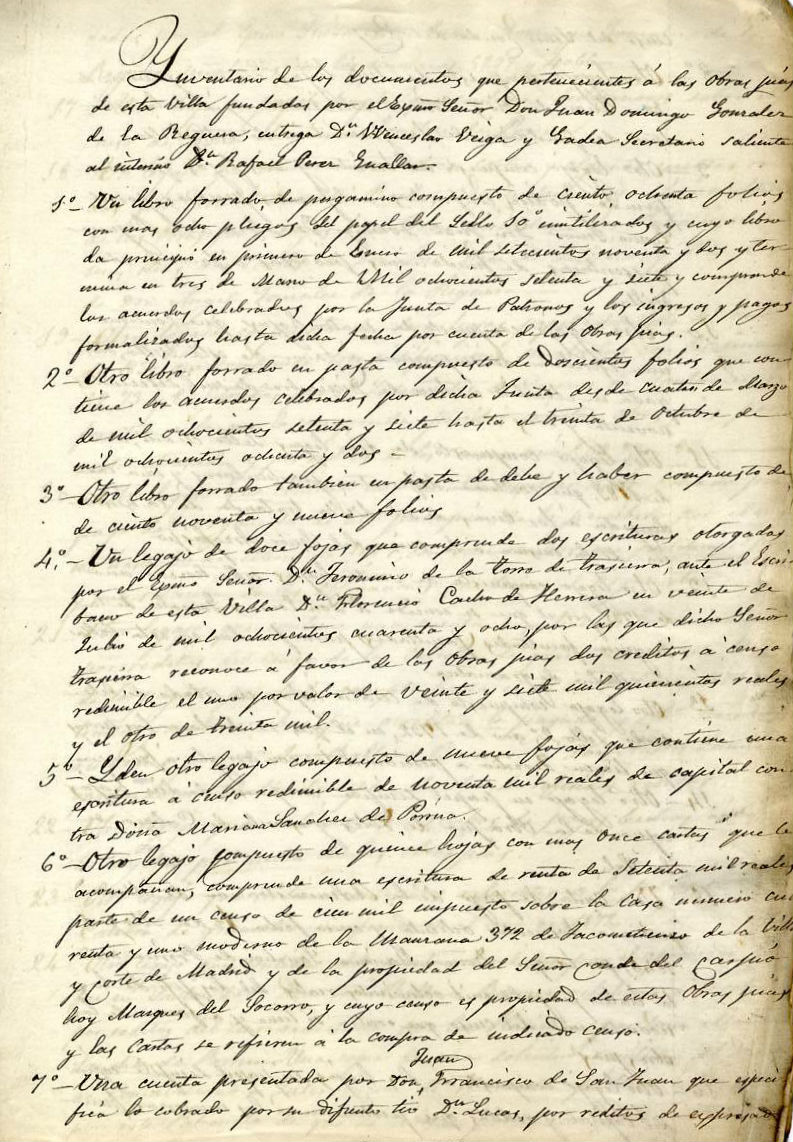 Ynventario de los documentos que pertenecientes á las Obras pias
de esta Villa fundadas por el Exmo Señor Don Juan Domingo Gonzalez
de la Reguera, entrega Dn Wenceslao Veiga y Gadea Secretario saliente
al interino Dn Rafael Perez Guallar.
1º - Un libro forrado de pergamino compuesto de ciento ochenta folios
con mas ocho pliegos del papel del Sello 10º inutilizados y cuyo libro
da principio en primero de Enero de mil setecientos noventa y dos y ter-
mina en tres de Marzo de Mil ochocientos setenta y siete y comprende
los acuerdos celebrados por la Junta de Patronos y los ingresos y pagos
formalizados hasta dicha fecha por cuenta de las Obras pias.
2º - Otro libro forrado en pasta compuesto de doscientos folios que con-
tiene los acuerdos celebrados por dicha Junta desde cuatro de Marzo
de mil ochocientos setenta y siete hasta el treinta de Octubre de
mil ochocientos ochenta y dos -
3º - Otro libro forrado tambien en pasta de debe y haber compuesto de
de ciento noventa y nueve folios
4º. - Un legajo de doce fojas que comprende dos escrituras otorgadas
por el Exmo Señor. Dn Jeronimo de la Torre de Trasierra, ante el Escri-
bano de esta Villa Dn Florencio Cacho de Herrera en veinte de
Julio de mil ochocientos cuarenta y ocho, por las que dicho Señor
Trasierra reconoce á favor de las Obras pias dos creditos á censo
redimible el uno por valor de veinte y siete mil quinientos reales
y el otro de treinta mil.
5º - Yden otro legajo compuesto de nueve fojas que contiene una
escritura á censo redimible de noventa mil reales de capital con-
tra Doña Mariana Sanchez de Porrua.
6º - Otro legajo compuesto de quince hojas con mas once cartas que le
acompañan, comprende una escritura de renta de Setenta mil reales
parte de un censo de cien mil impuesto sobre la Casa numero cua
renta y uno moderno de la Manzana 372 de Jacometrezo de la Villa
y Corte de Madrid y de la propiedad del Señor Conde del Carpio
hoy Marques del Socorro, y cuyo censo es propiedad de estas Obras pias
y las Cartas se refieren á la compra de indicado censo.
Juan
7º - Una cuenta presentada por Don Francisco de San Juan que especi-
fica lo cobrado por su difunto tio Dn Lucas, por reditos de expresado